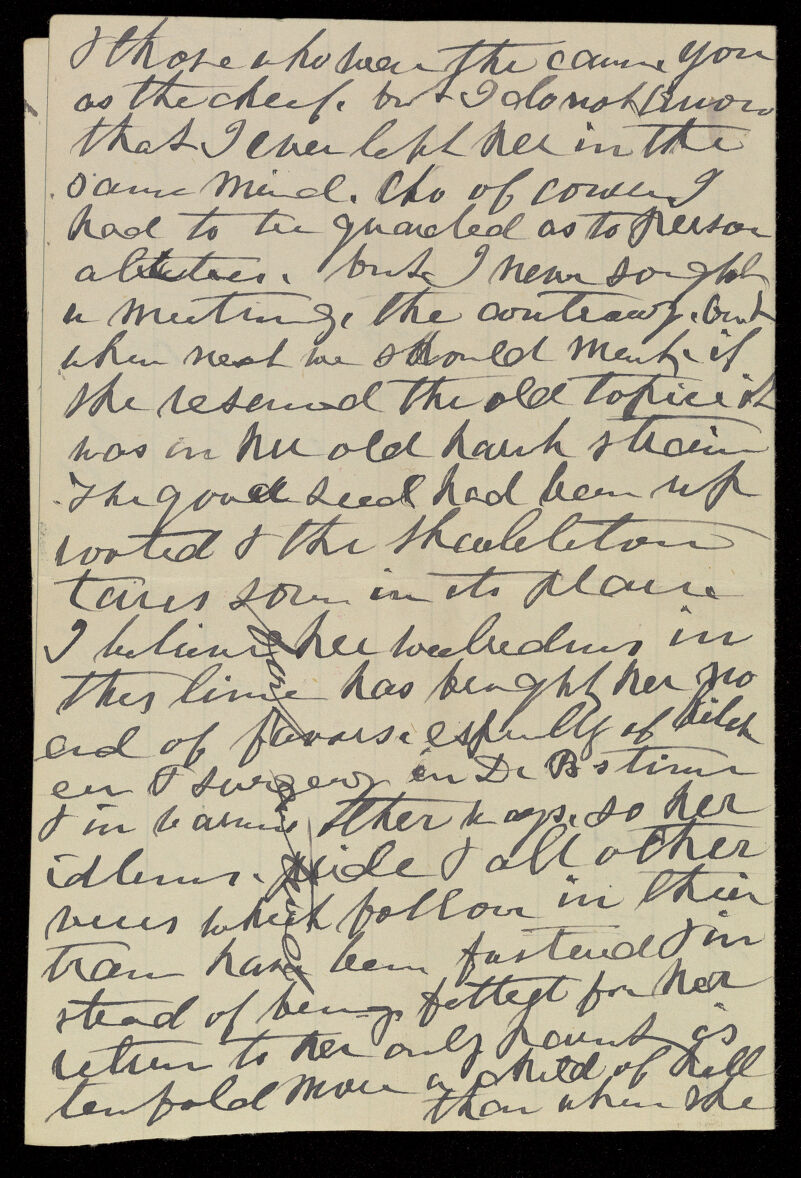 & those who were the cause, you
as the cheif. but I do not know
that I ever left her in the
same mind. tho of course I
had to be guarded as to person
alities. but I never sought
a meeting, the contrary. but
when next we should meet, if
she resumed the old topic it
was in her old harsh strain
The good seed had been up
rooted & the
tares sown in its place
I believe her wickedness in
this line has brought her no
end of favors. espully of kitch
en & surgery in Dr Bs time
& in various other ways. so her
idleness. pride & all other
vices which follow in their
train have been fostered & in
stead of being
for her
return to her only haunt is
tenfold more a child of hell
than when she